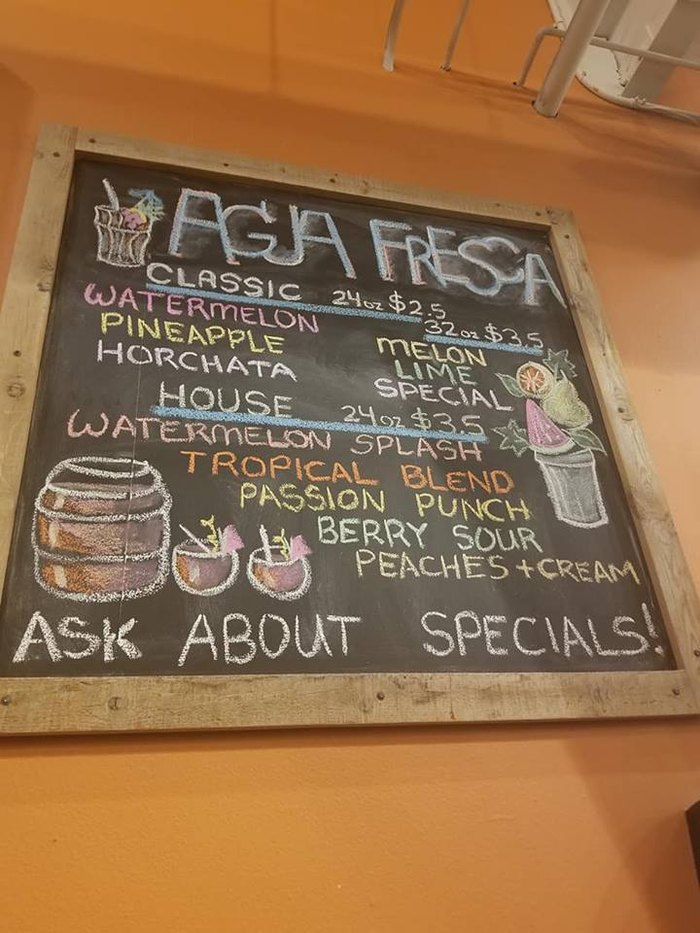 AGUA FRESCA
CLASSIC 24oz $2.5
32oz $3.5
WATERMELON
PINEAPPLE
HORCHATA
MELON
LIME
SPECIAL
HOUSE 24oz $3.5
WATERMELON SPLASH
TROPICAL BLEND
PASSION PUNCH
BERRY SOUR
PEACHES + CREAM
ASK ABOUT SPECIALS!